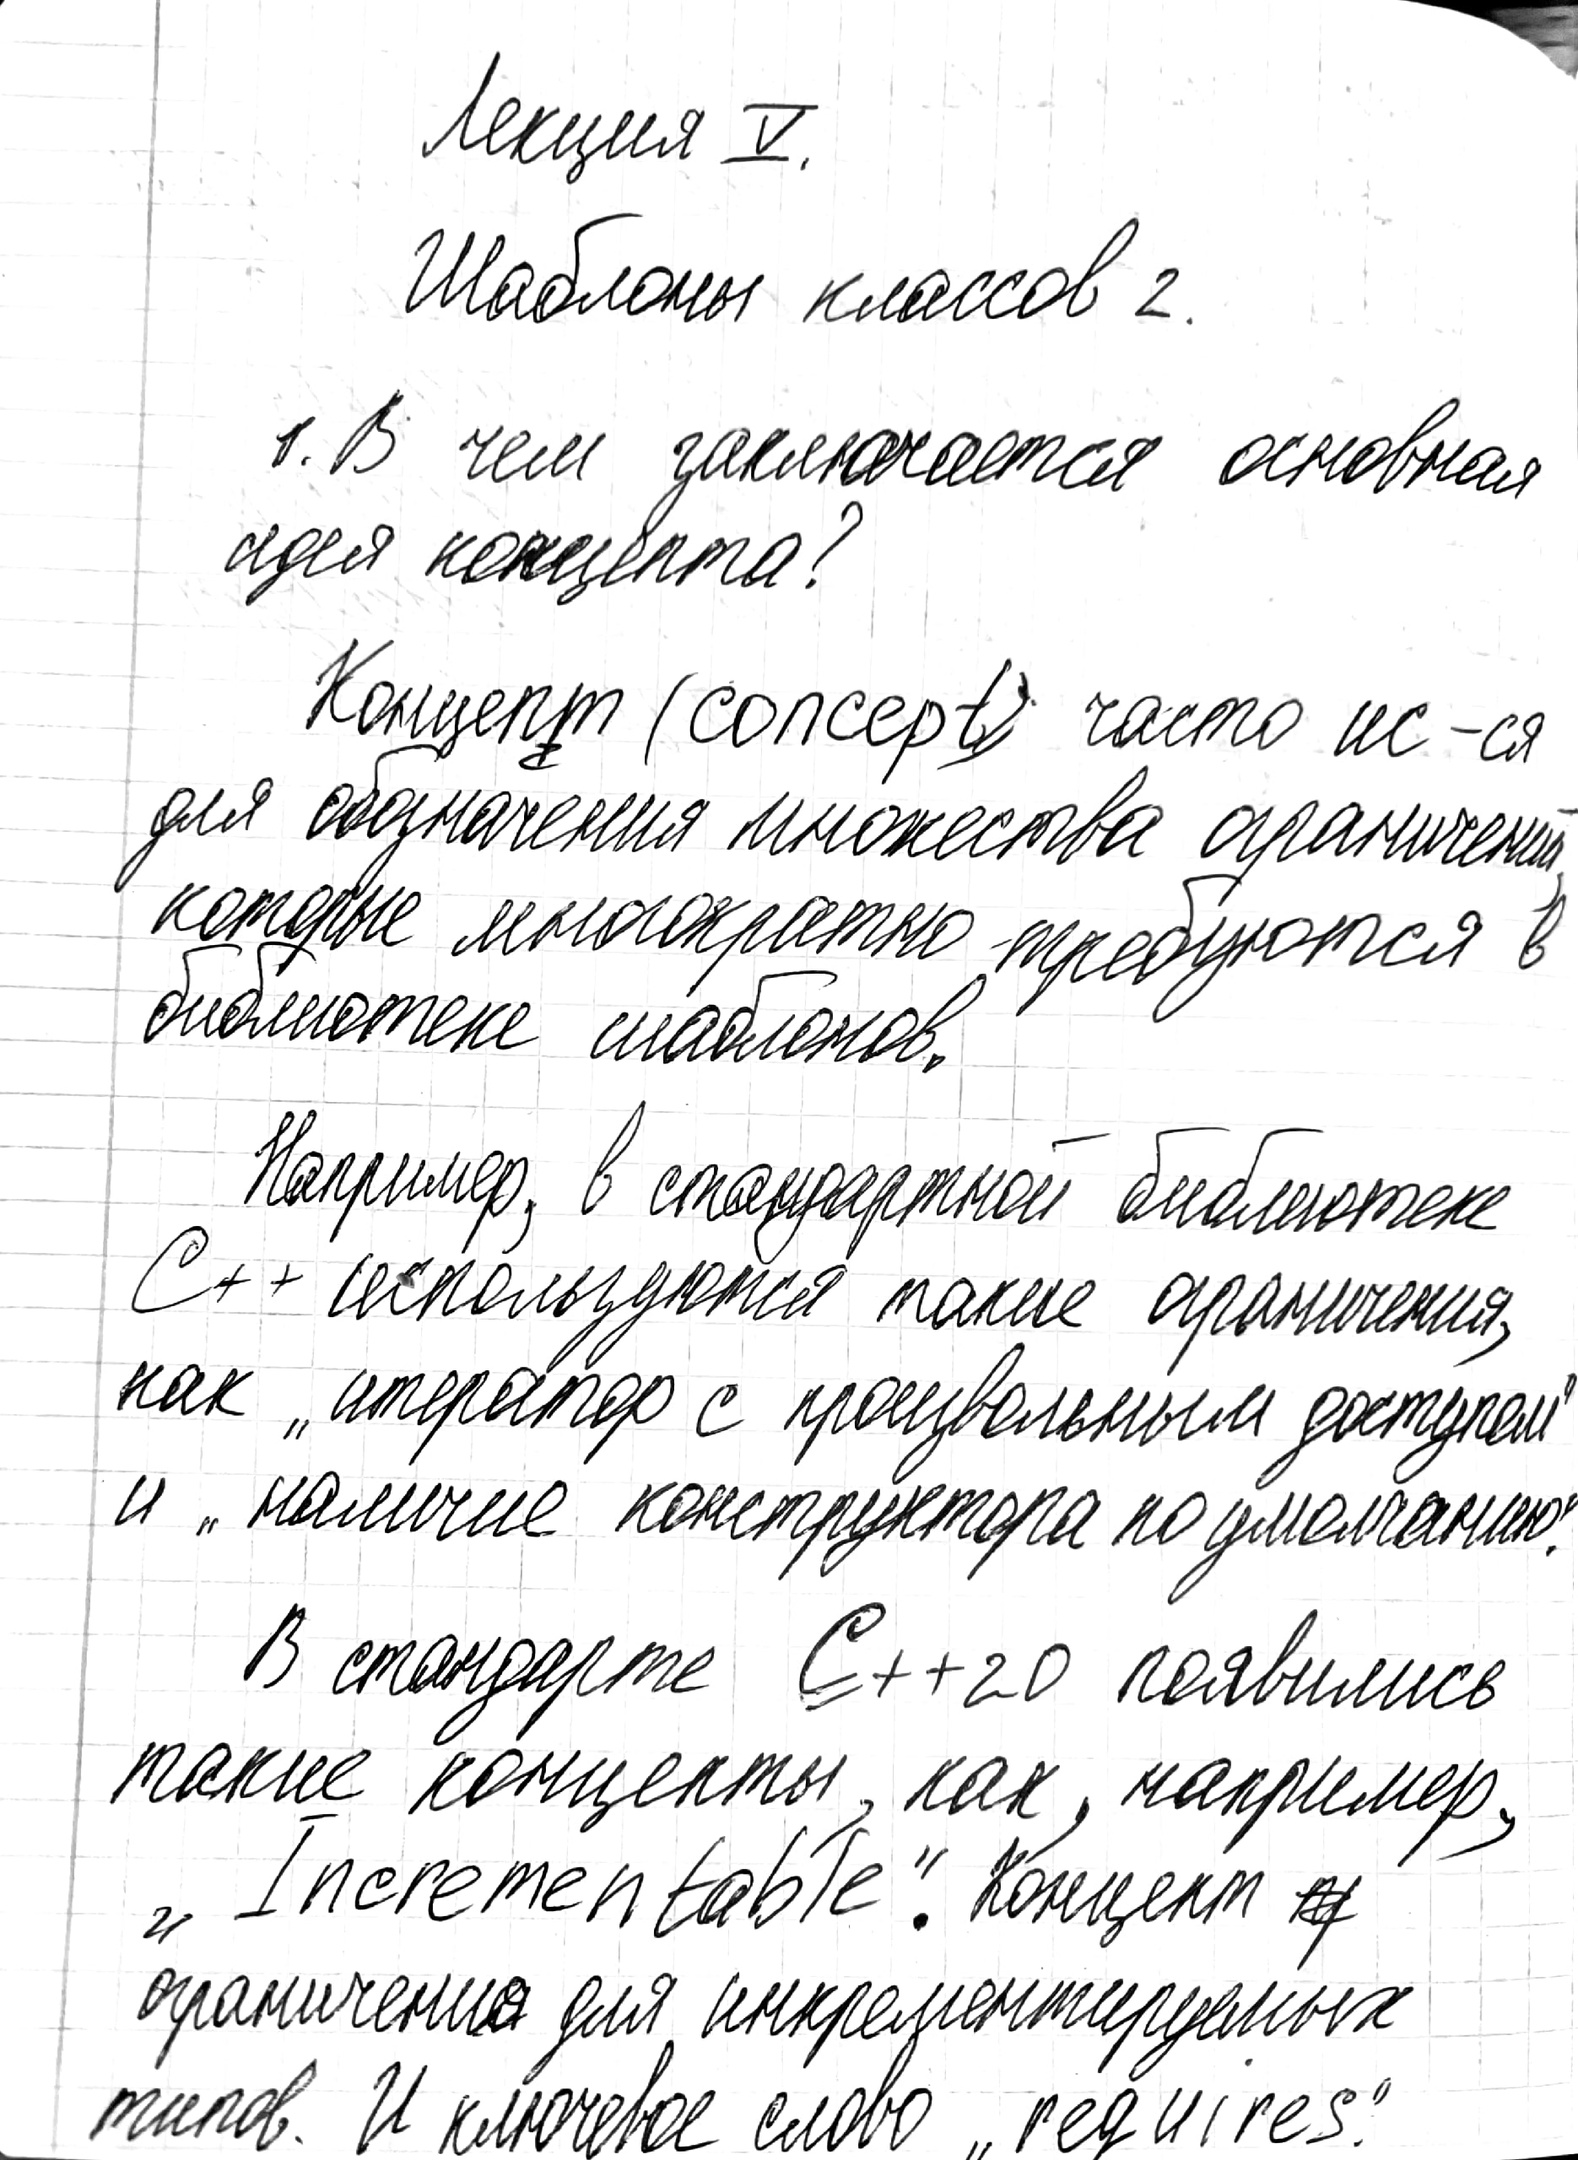 Лекция V.
Шаблоны классов 2.
1. В чем заключается основная
идея концепта?
Концепт (concept) часто ис-ся
для обозначения множества ограничений,
которые многократно требуются в
библиотеке шаблонов.
Например, в стандартной библиотеке
C++ используются такие ограничения,
как „итератор с произвольным доступом"
и „наличие конструктора по умолчанию".
В стандарте C++20 появились
такие концепты, как, например,
„Incrementable". Концепт
ограничения для инкрементируемых
типов. И ключевое слово „requires".